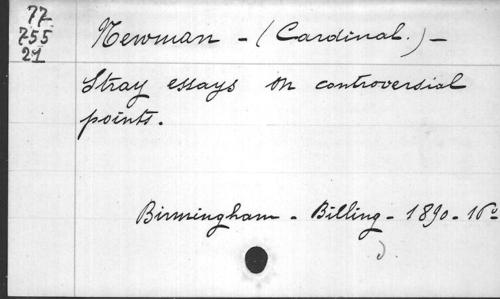 77
755
21
Newman - (Cardinal.) -
Stray essays on controversial
points.
Birmingham - Billing - 1890 - 16º